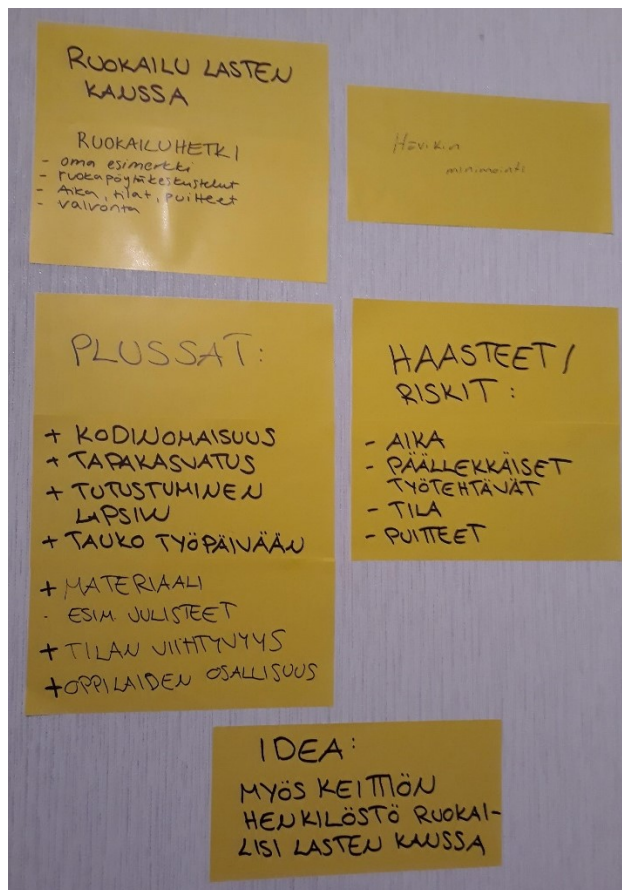 RUOKAILU LASTEN
KANSSA
RUOKAILUHETKI
- oma esimerkki
- ruokapöytäkeskustelut
- Aika, tilat, puitteet
- valvonta
Hävikin
minimointi
PLUSSAT:
+ KODINOMAISUUS
+ TAPAKASVATUS
+ TUTUSTUMINEN
LAPSIIN
+ TAUKO TYÖPÄIVÄÄN
+ MATERIAALI
- ESIM JULISTEET
+ TILAN VIIHTYVYYS
+ OPPILAIDEN OSALLISUUS
HAASTEET /
RISKIT :
- AIKA
- PÄÄLLEKKÄISET
TYÖTEHTÄVÄT
- TILA
- PUITTEET
IDEA:
MYÖS KEITTIÖN
HENKILÖSTÖ RUOKAI-
LISI LASTEN KANSSA